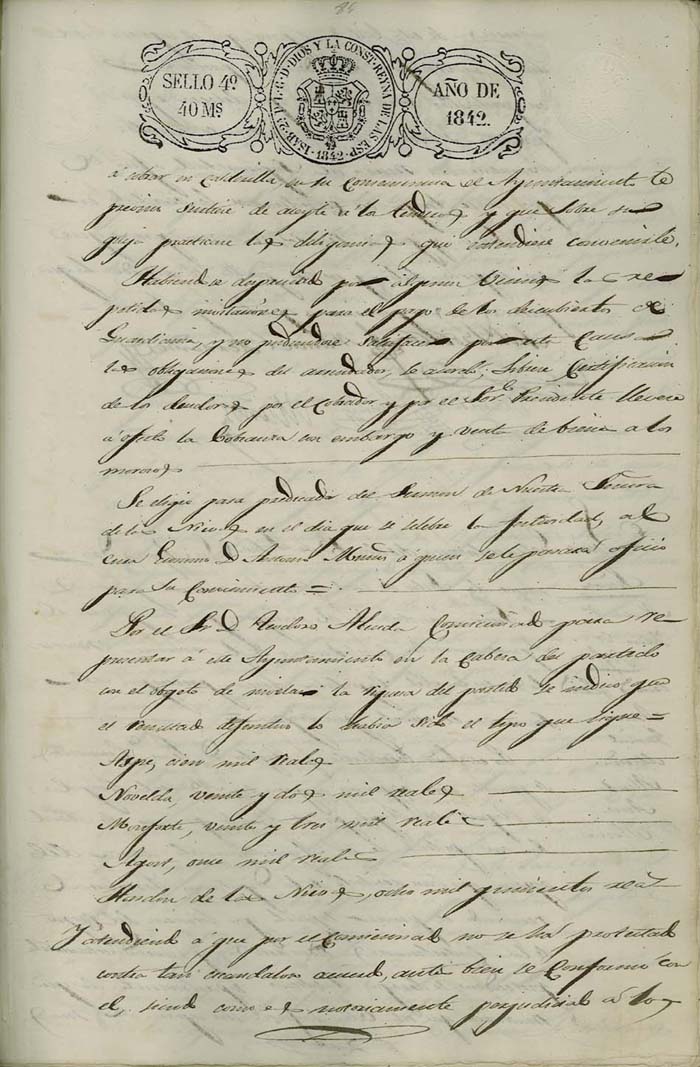 86
SELLO 4º
40 Ms
ISAB. 2ª P. L. G. D. DIOS Y LA CONST. REYNA DE LAS ESP.
1842
AÑO DE
1842.
á en su consecuencia el Ayuntamiento le
de aceyte á los y que sobre su
queja practicare las diligencias que entendiere convenirle.
Habiendose despreciado por algunos Vecinos las re
petidas para el pago de los descubiertos de
y no pudiendose satisfacer por esta causa
las obligaciones del arrendador, se acordó: librese Certificacion
de los deudores por el Cobrador y por el Sor. Presidente llevese
á efecto la Cobranza con embargo y venta de bienes a los
morosos
Se eligió para predicador del Sermon de Nuestra Señora
de las Nieves en el dia que se celebre la festividad, al
cura D. Antonio á quien se le pasará oficio
para su conocimiento =
Por el Sr. D. Teodoro Alenda Comisionado para re-
presentar á este Ayuntamiento en la Cabeza del partido
con el objeto de nivelar la riqueza del partido se indicó que
el resultado definitivo lo habia sido el tipo que sigue =
Aspe, cien mil reales
Novelda, veinte y dos mil reales
Monforte, veinte y tres mil reales
Agost, once mil reales
Hondon de las Nieves, ocho mil quinientos reas
Y atendiendo á que por el Comisionado no se ha protestado
contra tan escandaloso acuerdo, antes bien se conformó con
el, siendo como es notoriamente perjudicial á los